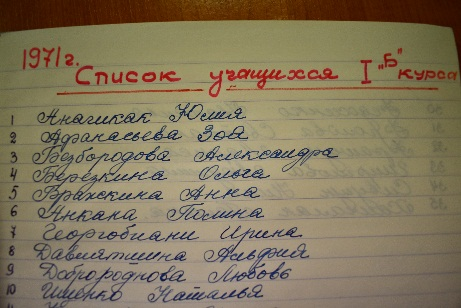 1971 г.
Список учащихся I "Б" курса
1 Анагикак Юлия
2 Афанасьева Зоя
3 Безбородова Александра
4 Берёзкина Ольга
5 Вражскина Анна
6 Анкана Полина
7 Георгобиани Ирина
8 Давлятшина Альфия
9 Добророднова Любовь
10 Ищенко Наталья